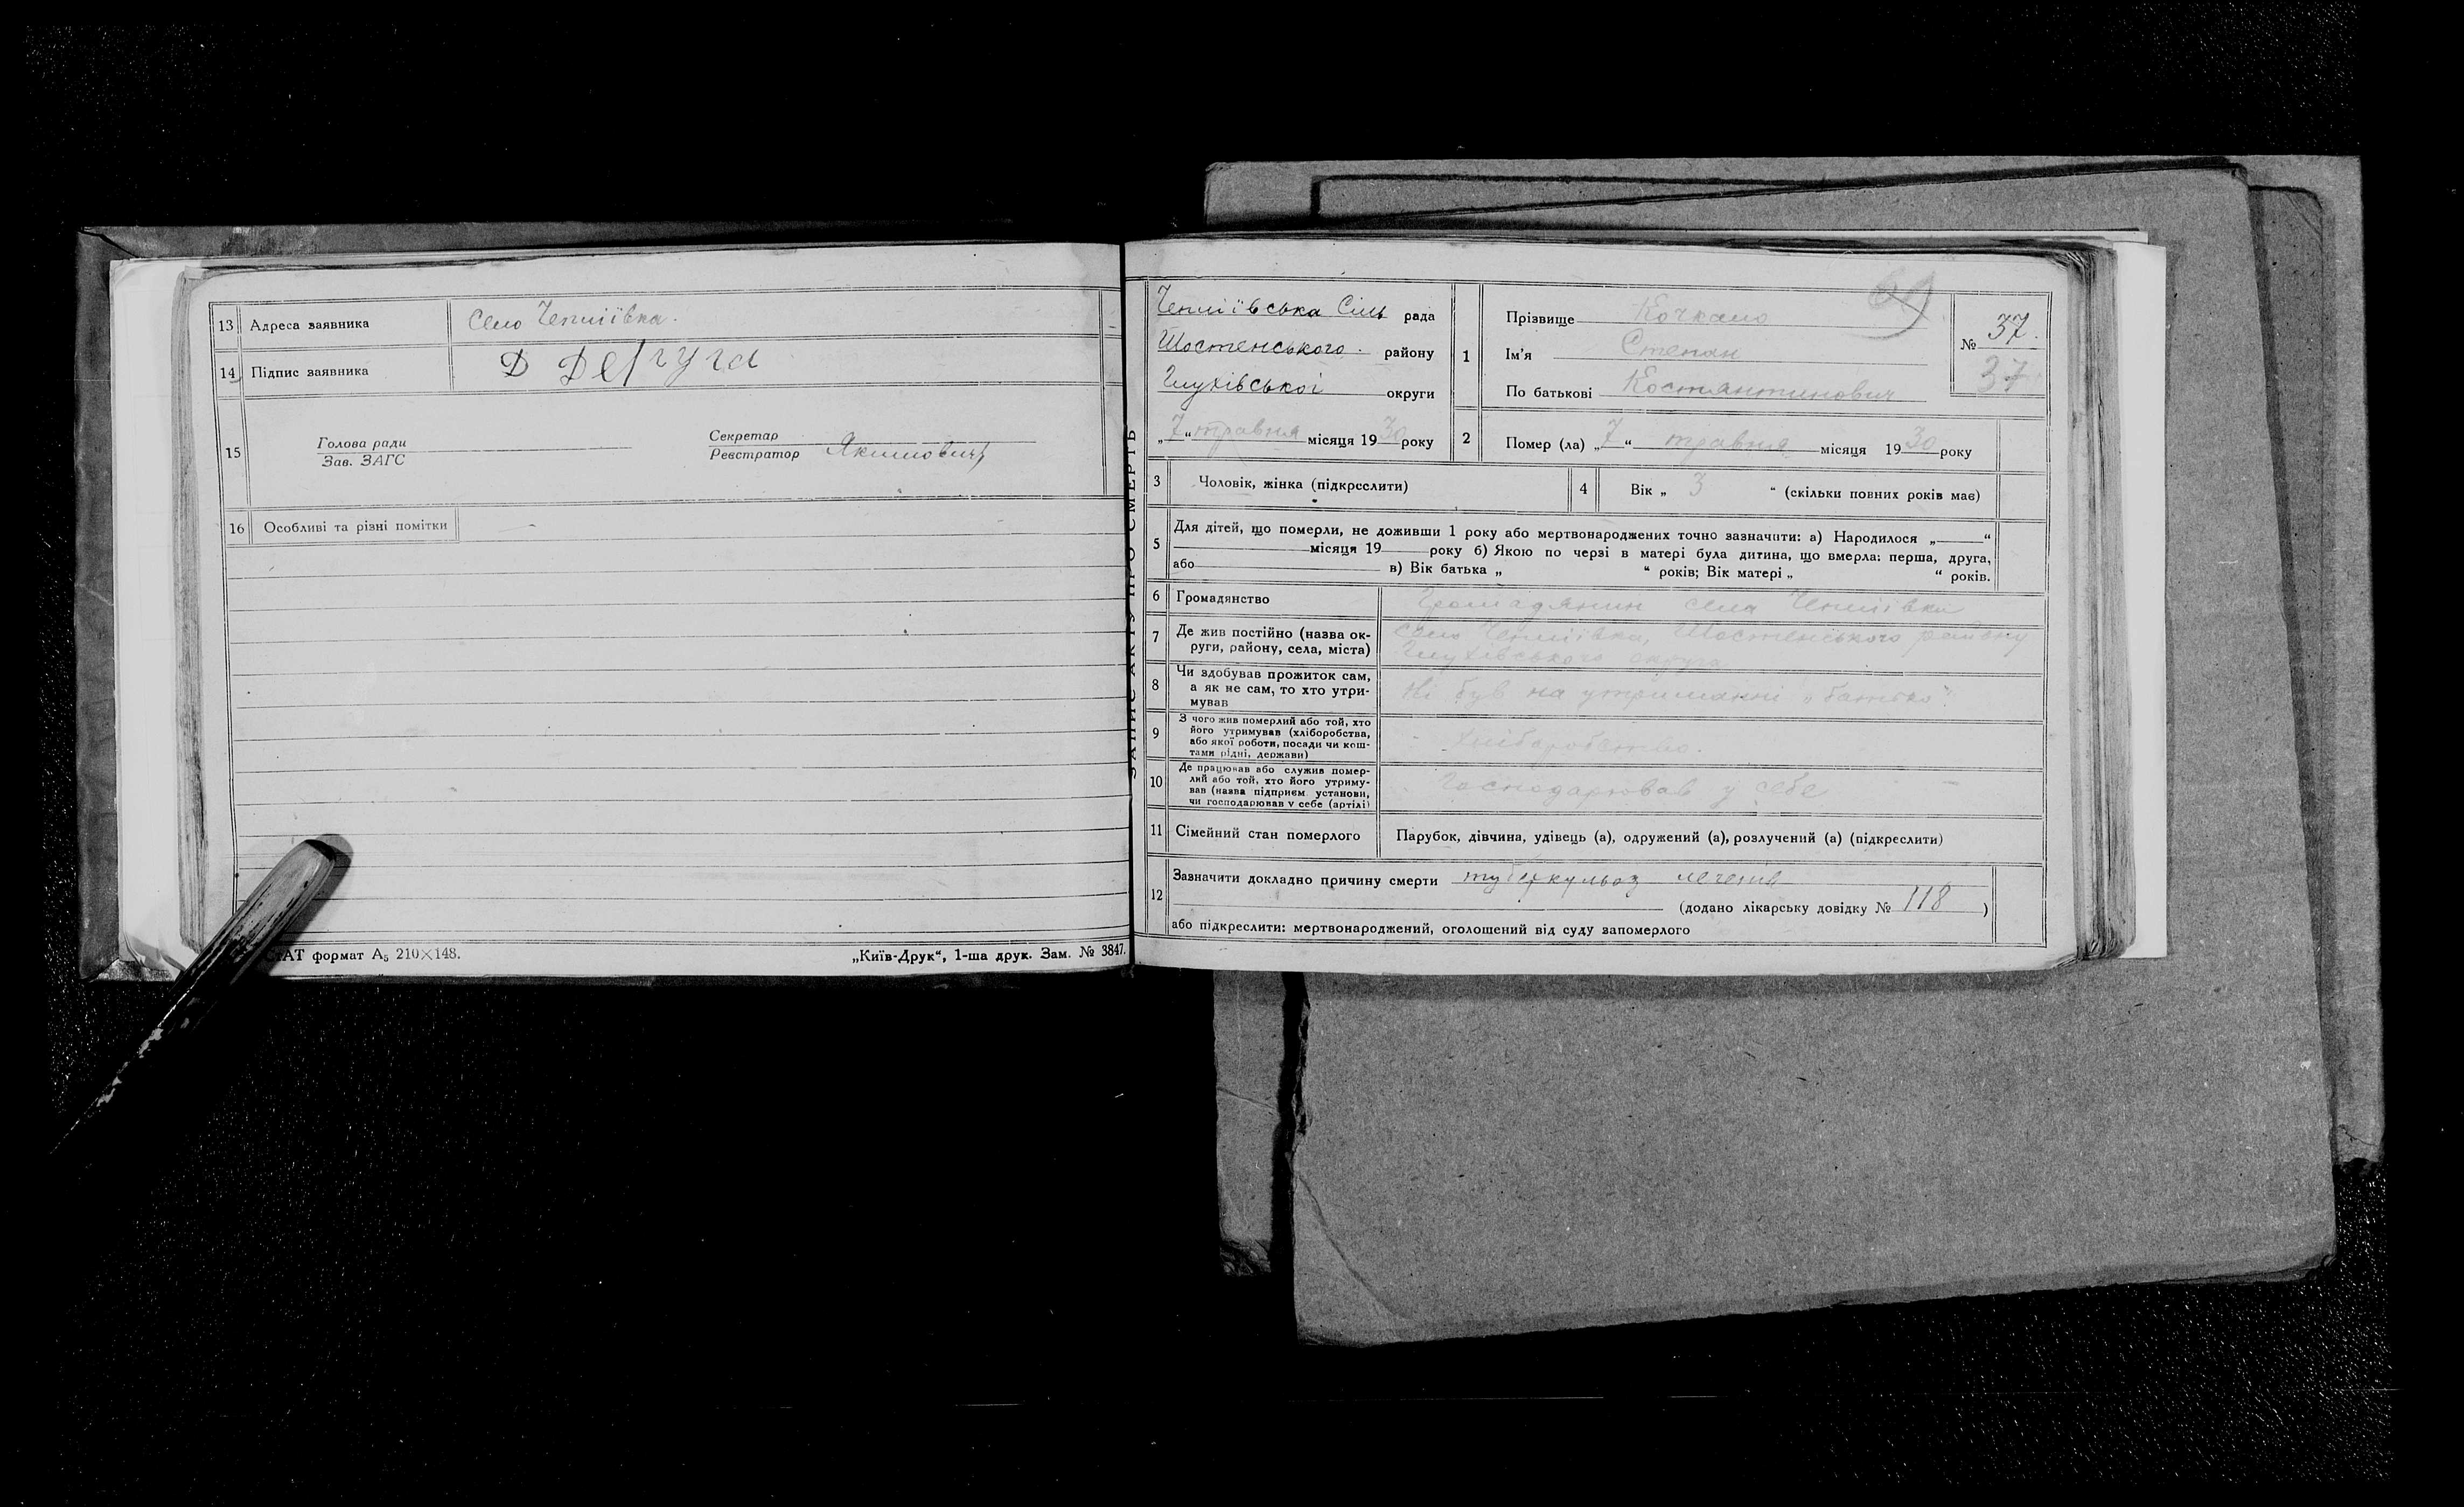 13 Адреса заявника Село Чепліївка.
14 Підпис заявника Д Дегтуга
15 Голова ради Секретар
Зав. ЗАГС Реєстратор Якимович
16 Особливі та різні помітки —
СТАТ формат А₅ 210×148. „Київ-Друк“, 1-ша друк. Зам. № 3847.
ЗАПИС АКТУ ПРО СМЕРТЬ
Чепліївська Сіль рада
Шостенського. району
Глухівської округи
„7“ травня місяця 1930 року
1 Прізвище Кочкало
Ім'я Степан
По батькові Костянтинович
№ 37.
37
2 Помер (ла) „7“ травня місяця 1930 року
3 Чоловік, жінка (підкреслити)
4 Вік „ 3 “ (скільки повних років має)
5 Для дітей, що померли, не доживши 1 року або мертвонароджених точно зазначити: а) Народилося „ “
місяця 19 року б) Якою по черзі в матері була дитина, що вмерла: перша, друга,
або в) Вік батька „ “ років; Вік матері „ “ років.
6 Громадянство Громадянин села Чепліївки
7 Де жив постійно (назва ок-
руги, району, села, міста) село Чепліївка, Шостенського району
Глухівського округа
8 Чи здобував прожиток сам,
а як не сам, то хто утри-
мував Ні був на утриманні „батько“
9 З чого жив померлий або той, хто
його утримував (хліборобства,
або якої роботи, посади чи кош-
тами рідні, держави) Хліборобство.
10 Де працював або служив помер-
лий або той, хто його утриму-
вав (назва підприєм. установи,
чи господарював у себе (артілі) Господарював у себе
11 Сімейний стан померлого Парубок, дівчина, удівець (а), одружений (а), розлучений (а) (підкреслити)
12 Зазначити докладно причину смерти туберкульоз легенів
(додано лікарську довідку № 118 )
або підкреслити: мертвонароджений, оголошений від суду запомерлого